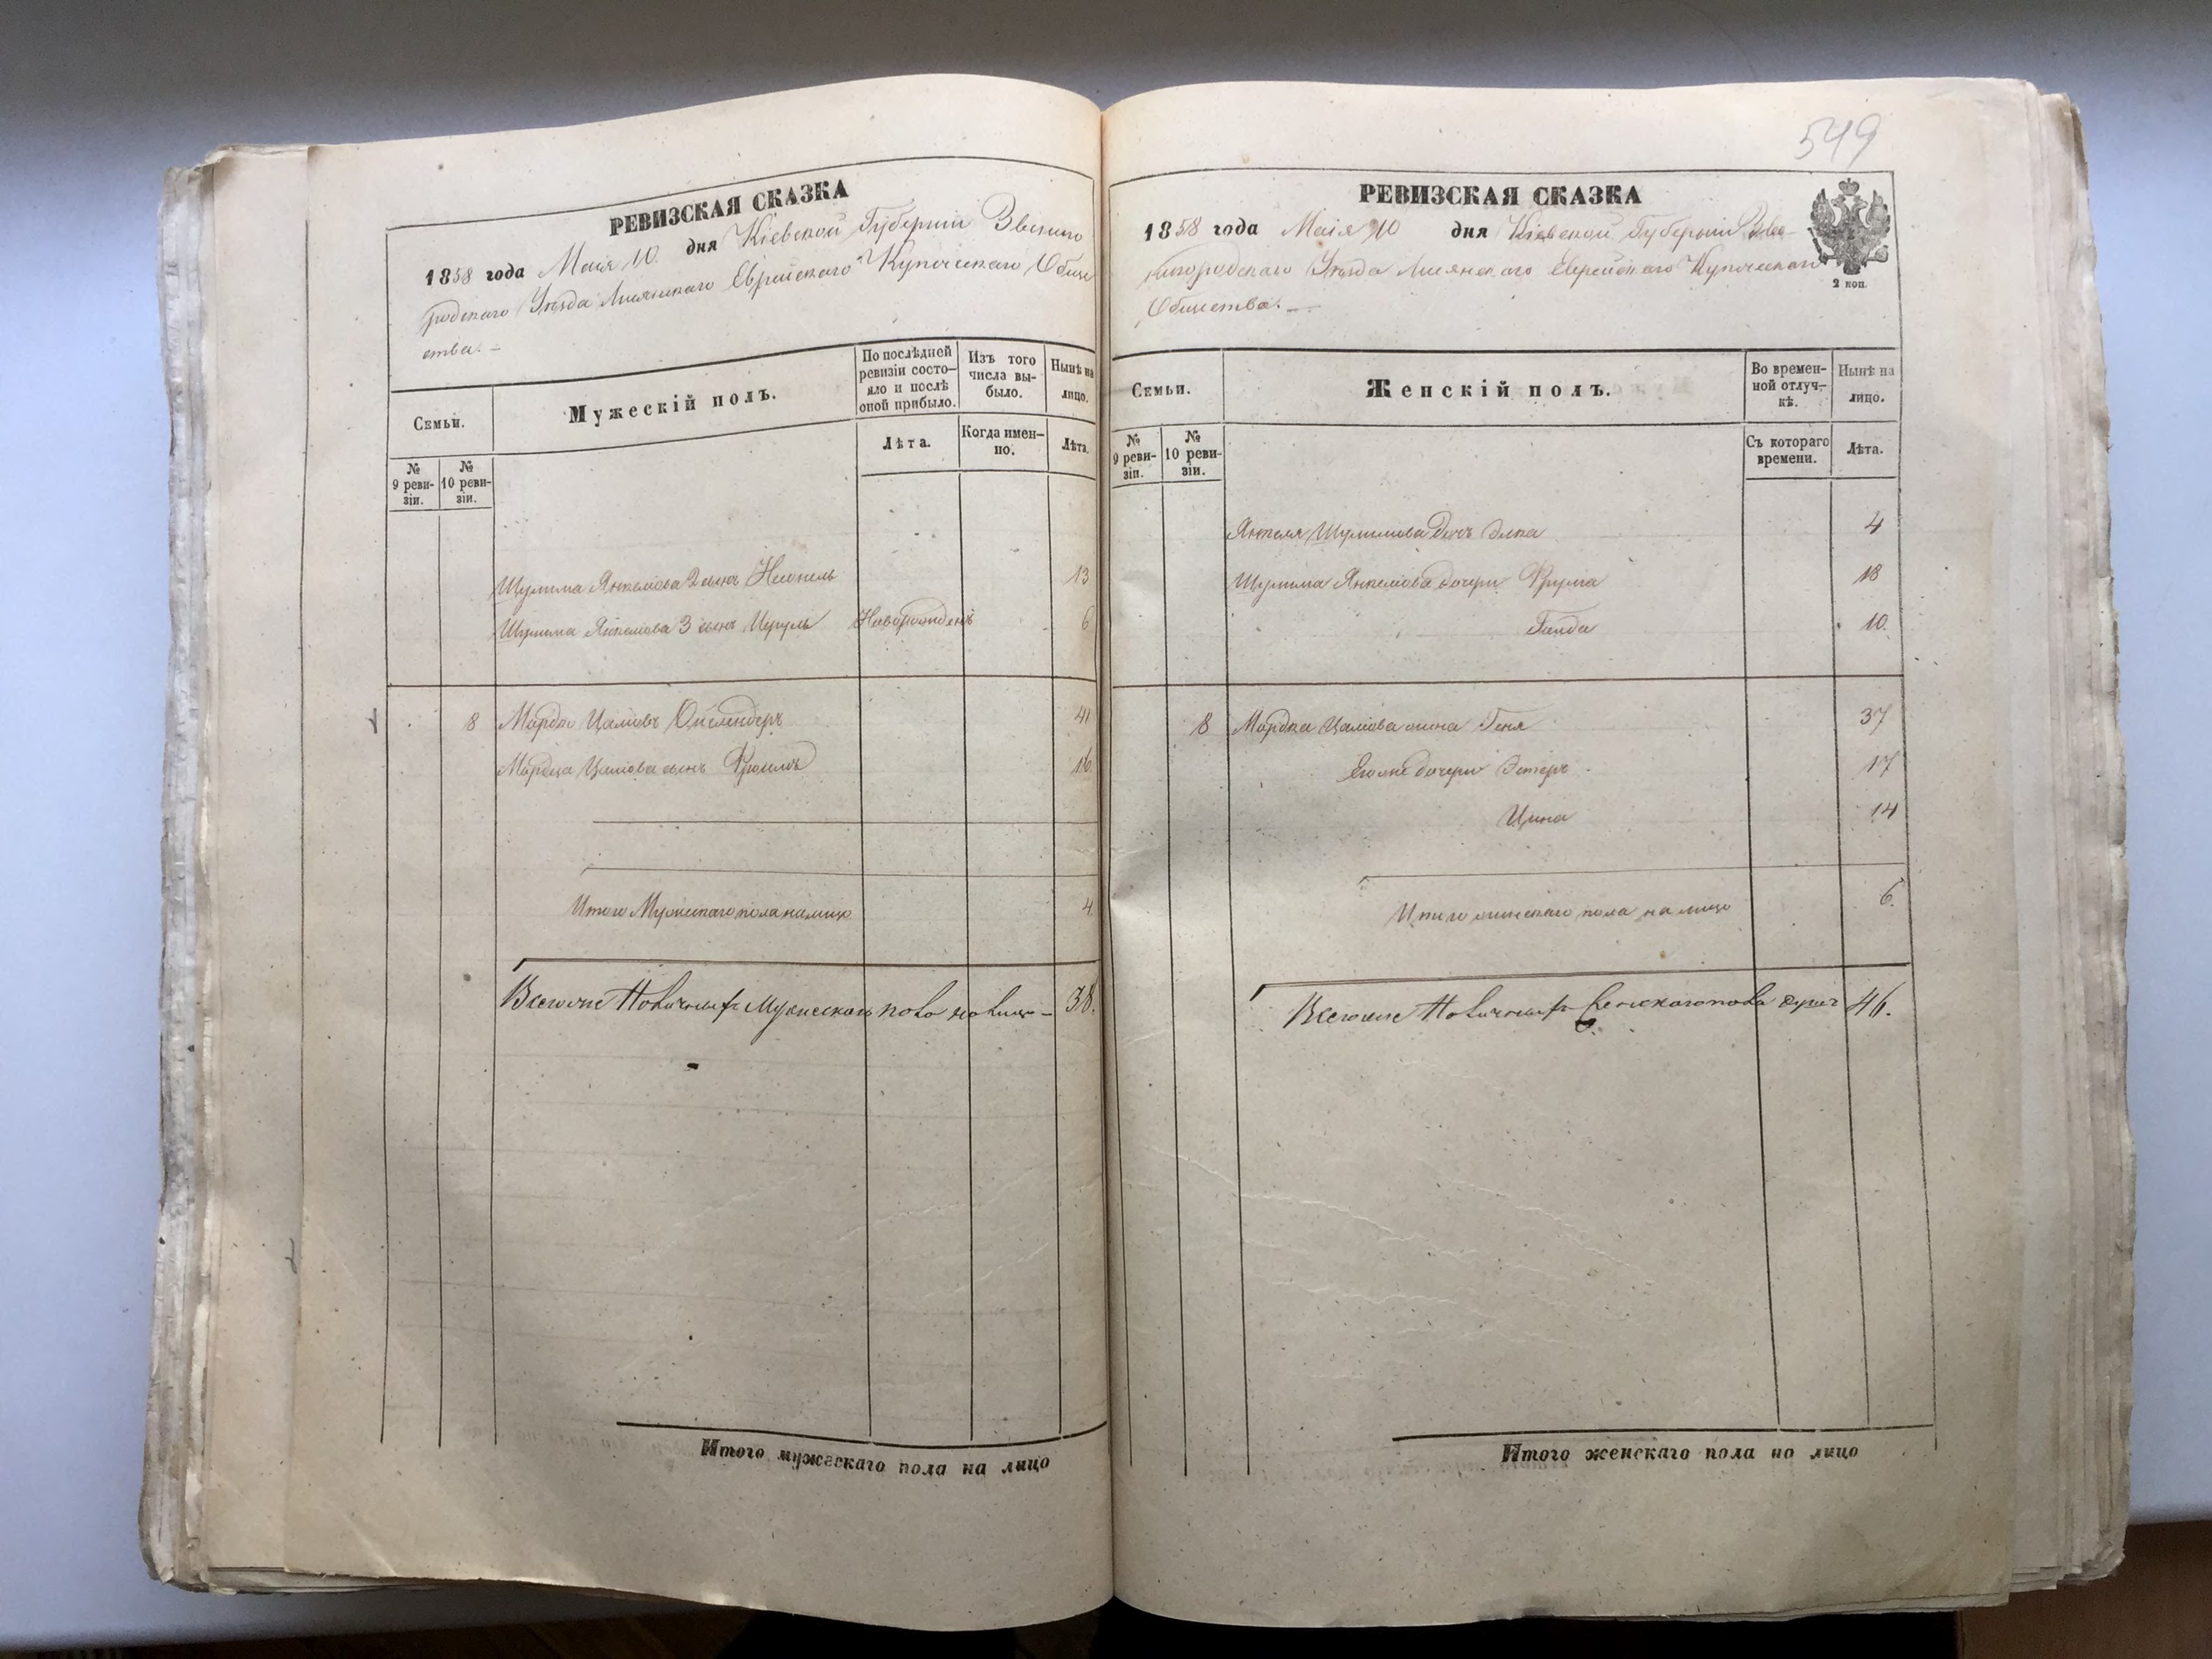 549
РЕВИЗСКАЯ СКАЗКА
1858 года Маія 10. дня Кіевской Губерніи Звениго
родскаго Уѣзда Лисянскаго Еврейскаго Купеческаго Обще
ства. –
Семьи.
Мужескій полъ.
По послѣдней ревизіи состо-
яло и послѣ оной прибыло.
Изъ того числа вы-
было.
Нынѣ на лицо.
№ 9 реви-
зіи.
№ 10 реви-
зіи.
Лѣта.
Когда имен-
но.
Лѣта.
Шулима Янкелова 2 сынъ 13
Шулима Янкелова 3 сынъ Новорожденъ 6
8 Мордко Цаліовъ 41
Мордка Цаліова сынъ Фроимъ 16
Итого Мужескаго пола на лицо 4
Всего же Наличныхъ Мужескаго пола на лицо – 38.
Итого мужескаго пола на лицо
РЕВИЗСКАЯ СКАЗКА
1858 года Маія 10 дня Кіевской Губерніи Зве-
нигородскаго Уѣзда Лисянскаго Еврейскаго Купеческаго
Общества. –
2 коп.
Семьи.
Женскій полъ.
Во времен-
ной отлуч-
кѣ.
Нынѣ на лицо.
№ 9 реви-
зіи.
№ 10 реви-
зіи.
Съ котораго времени.
Лѣта.
Янкеля Шулимова дочь Элка 4
Шулима Янкелова дочери Фрума 18
10.
8 Мордка Цаліова жена Геня 37
Его же дочери Эстеръ 17
Цина 14
Итого женскаго пола на лицо 6.
Всего же Наличныхъ Женскаго пола душъ 46.
Итого женскаго пола но лицо